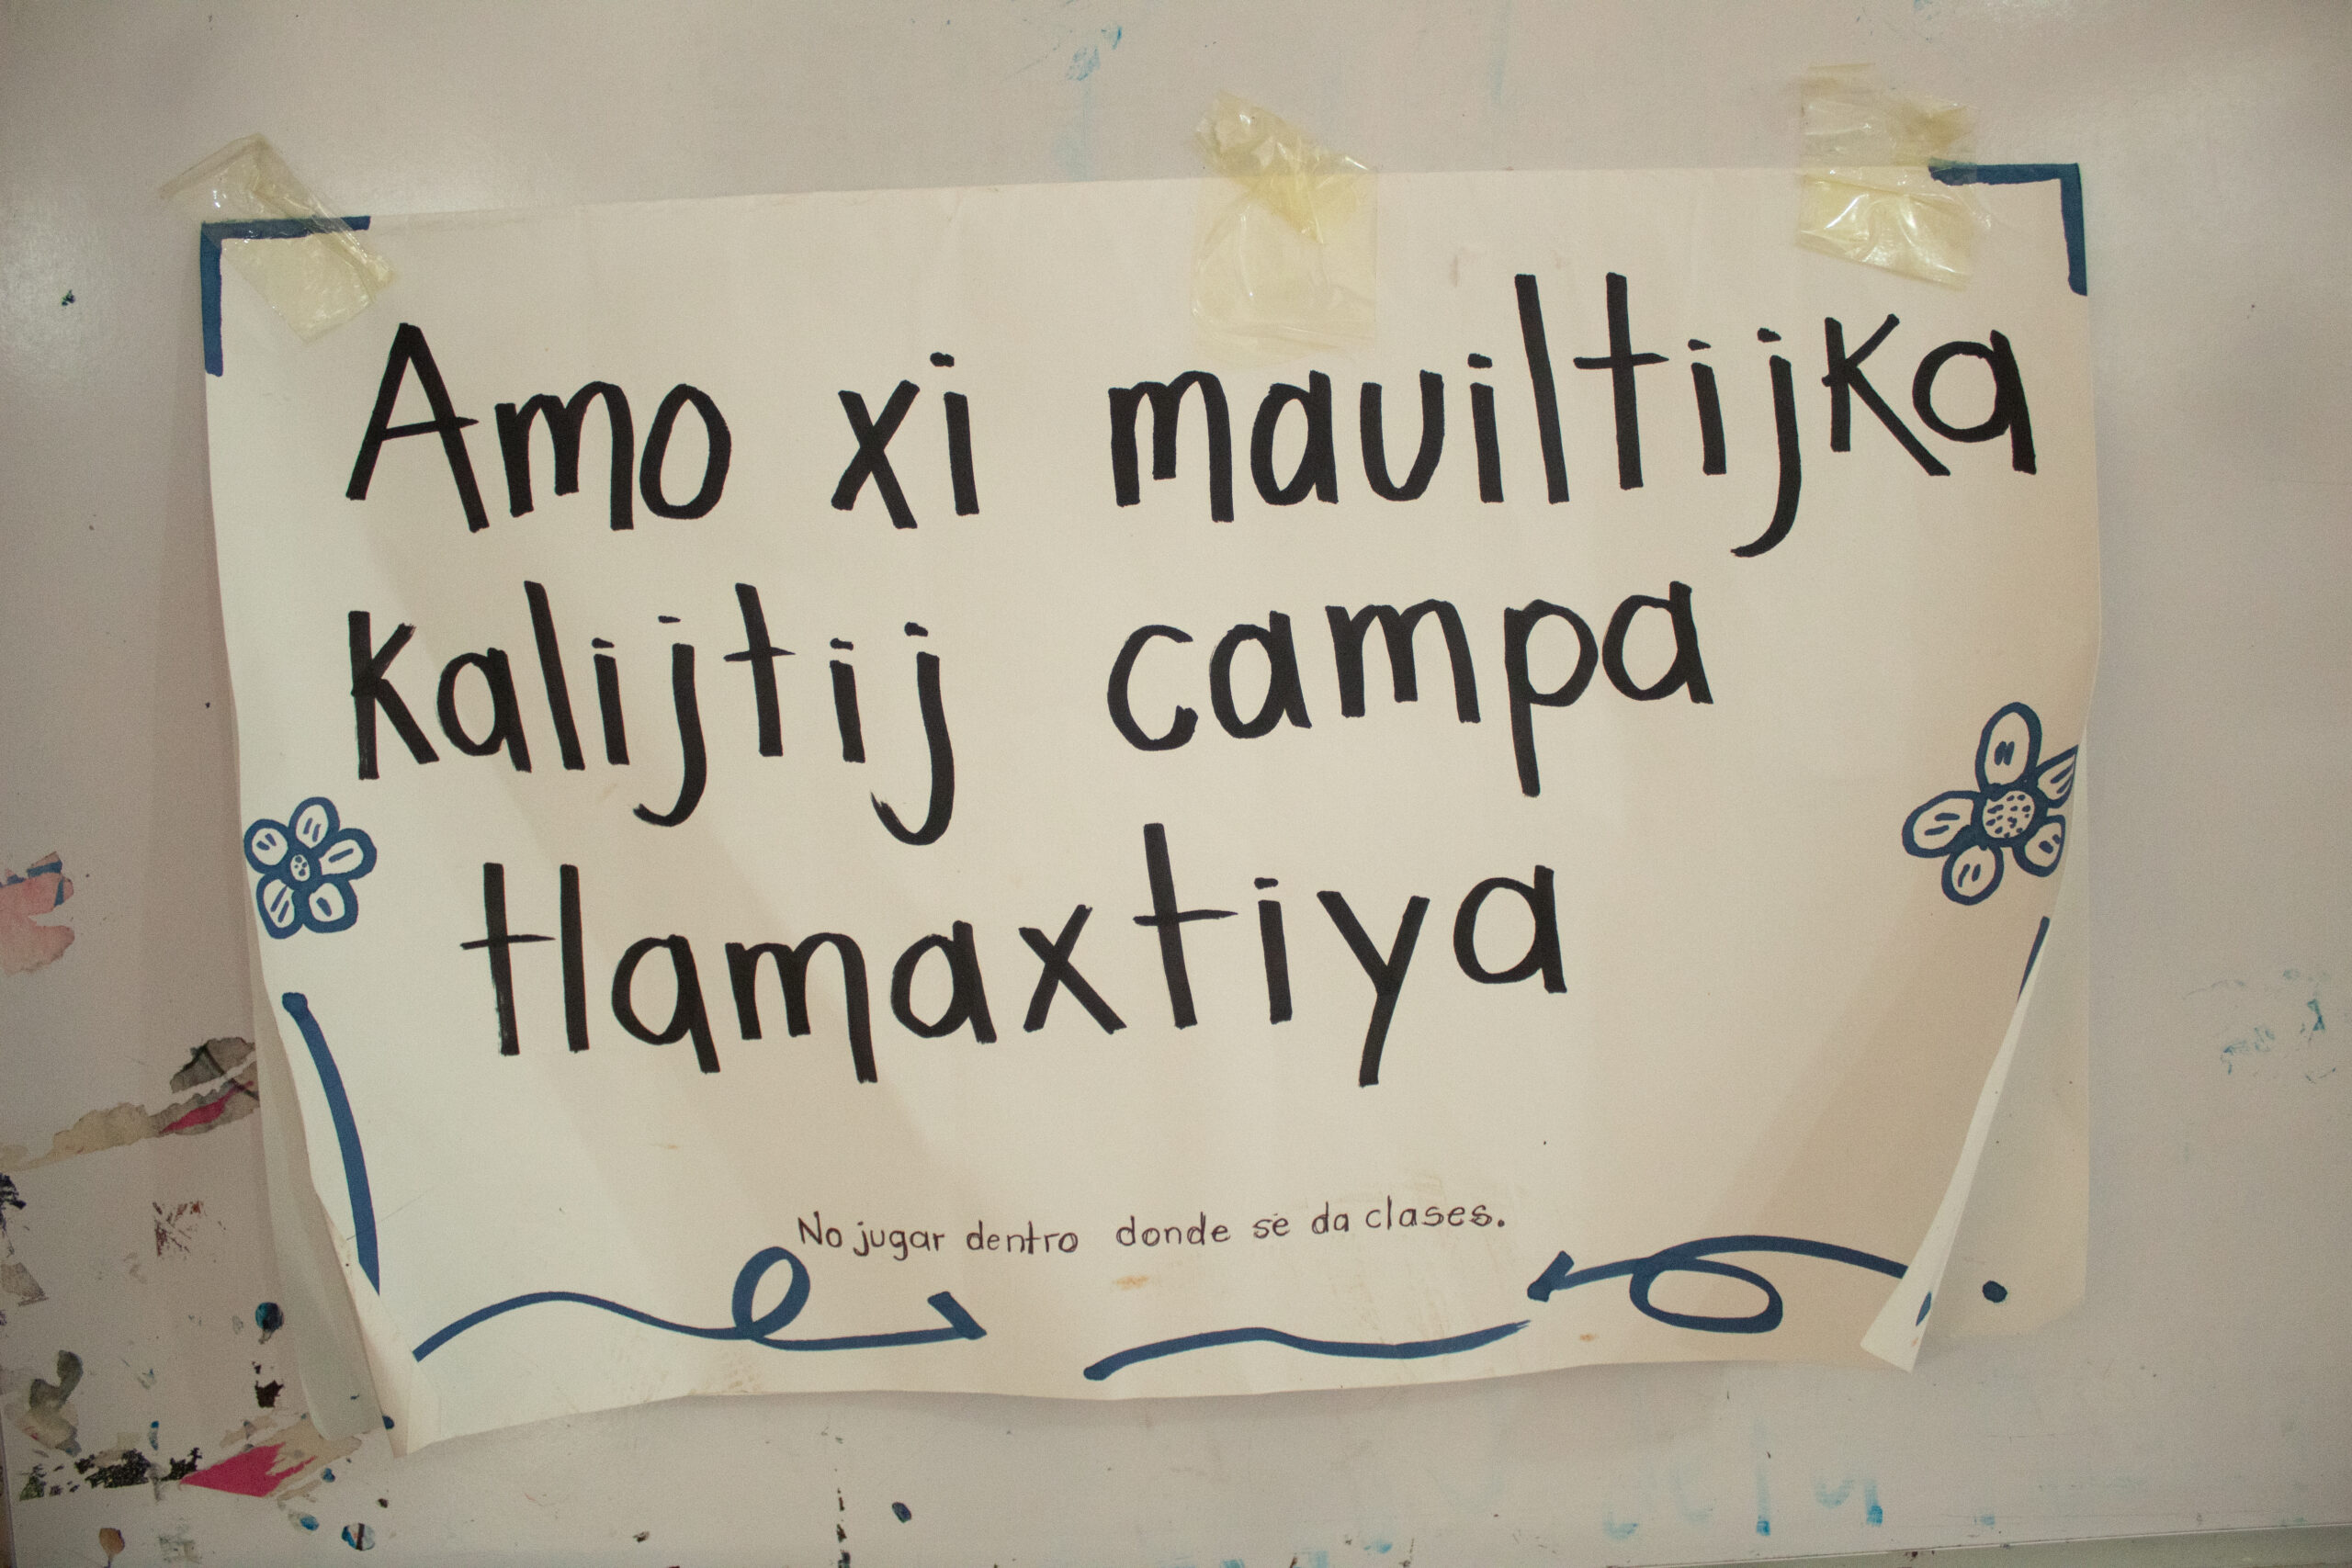 Amo xi mauiltijka
kalijtij campa
tlamaxtiya
No jugar dentro donde se da clases.